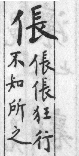 倀
倀倀狂行
不知所之